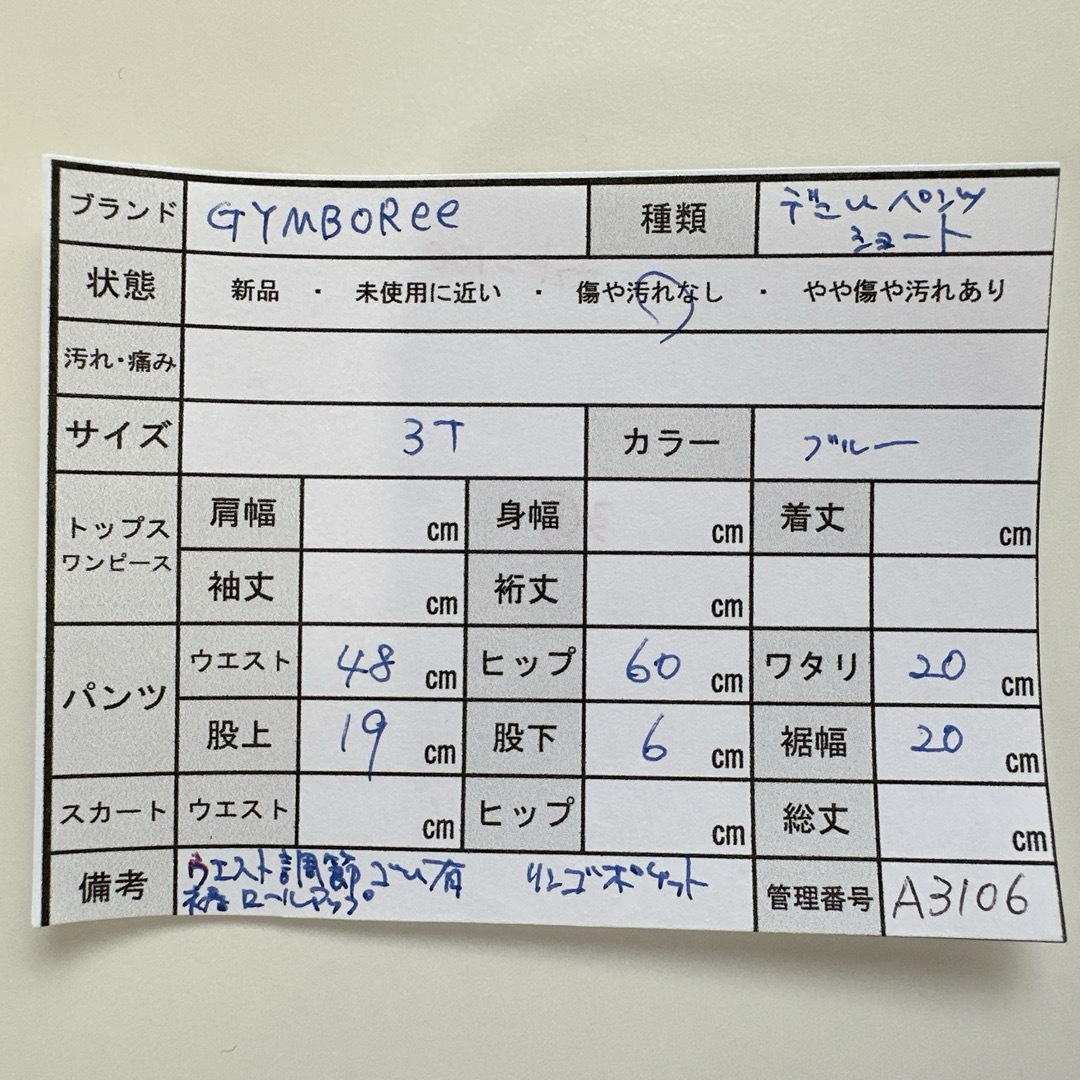 ブランド GYMBORee 種類 デニムパンツ
ショート
状態 新品 ・ 未使用に近い ・ 傷や汚れなし ・ やや傷や汚れあり
汚れ・痛み
サイズ 3T カラー ブルー
トップス
ワンピース
肩幅 cm 身幅 cm 着丈 cm
袖丈 cm 裄丈 cm
パンツ
ウエスト 48 cm ヒップ 60 cm ワタリ 20 cm
股上 19 cm 股下 6 cm 裾幅 20 cm
スカート ウエスト cm ヒップ cm 総丈 cm
備考 ウエスト調節ゴム有 リンゴポケット
裾ロールアップ
管理番号 A3106